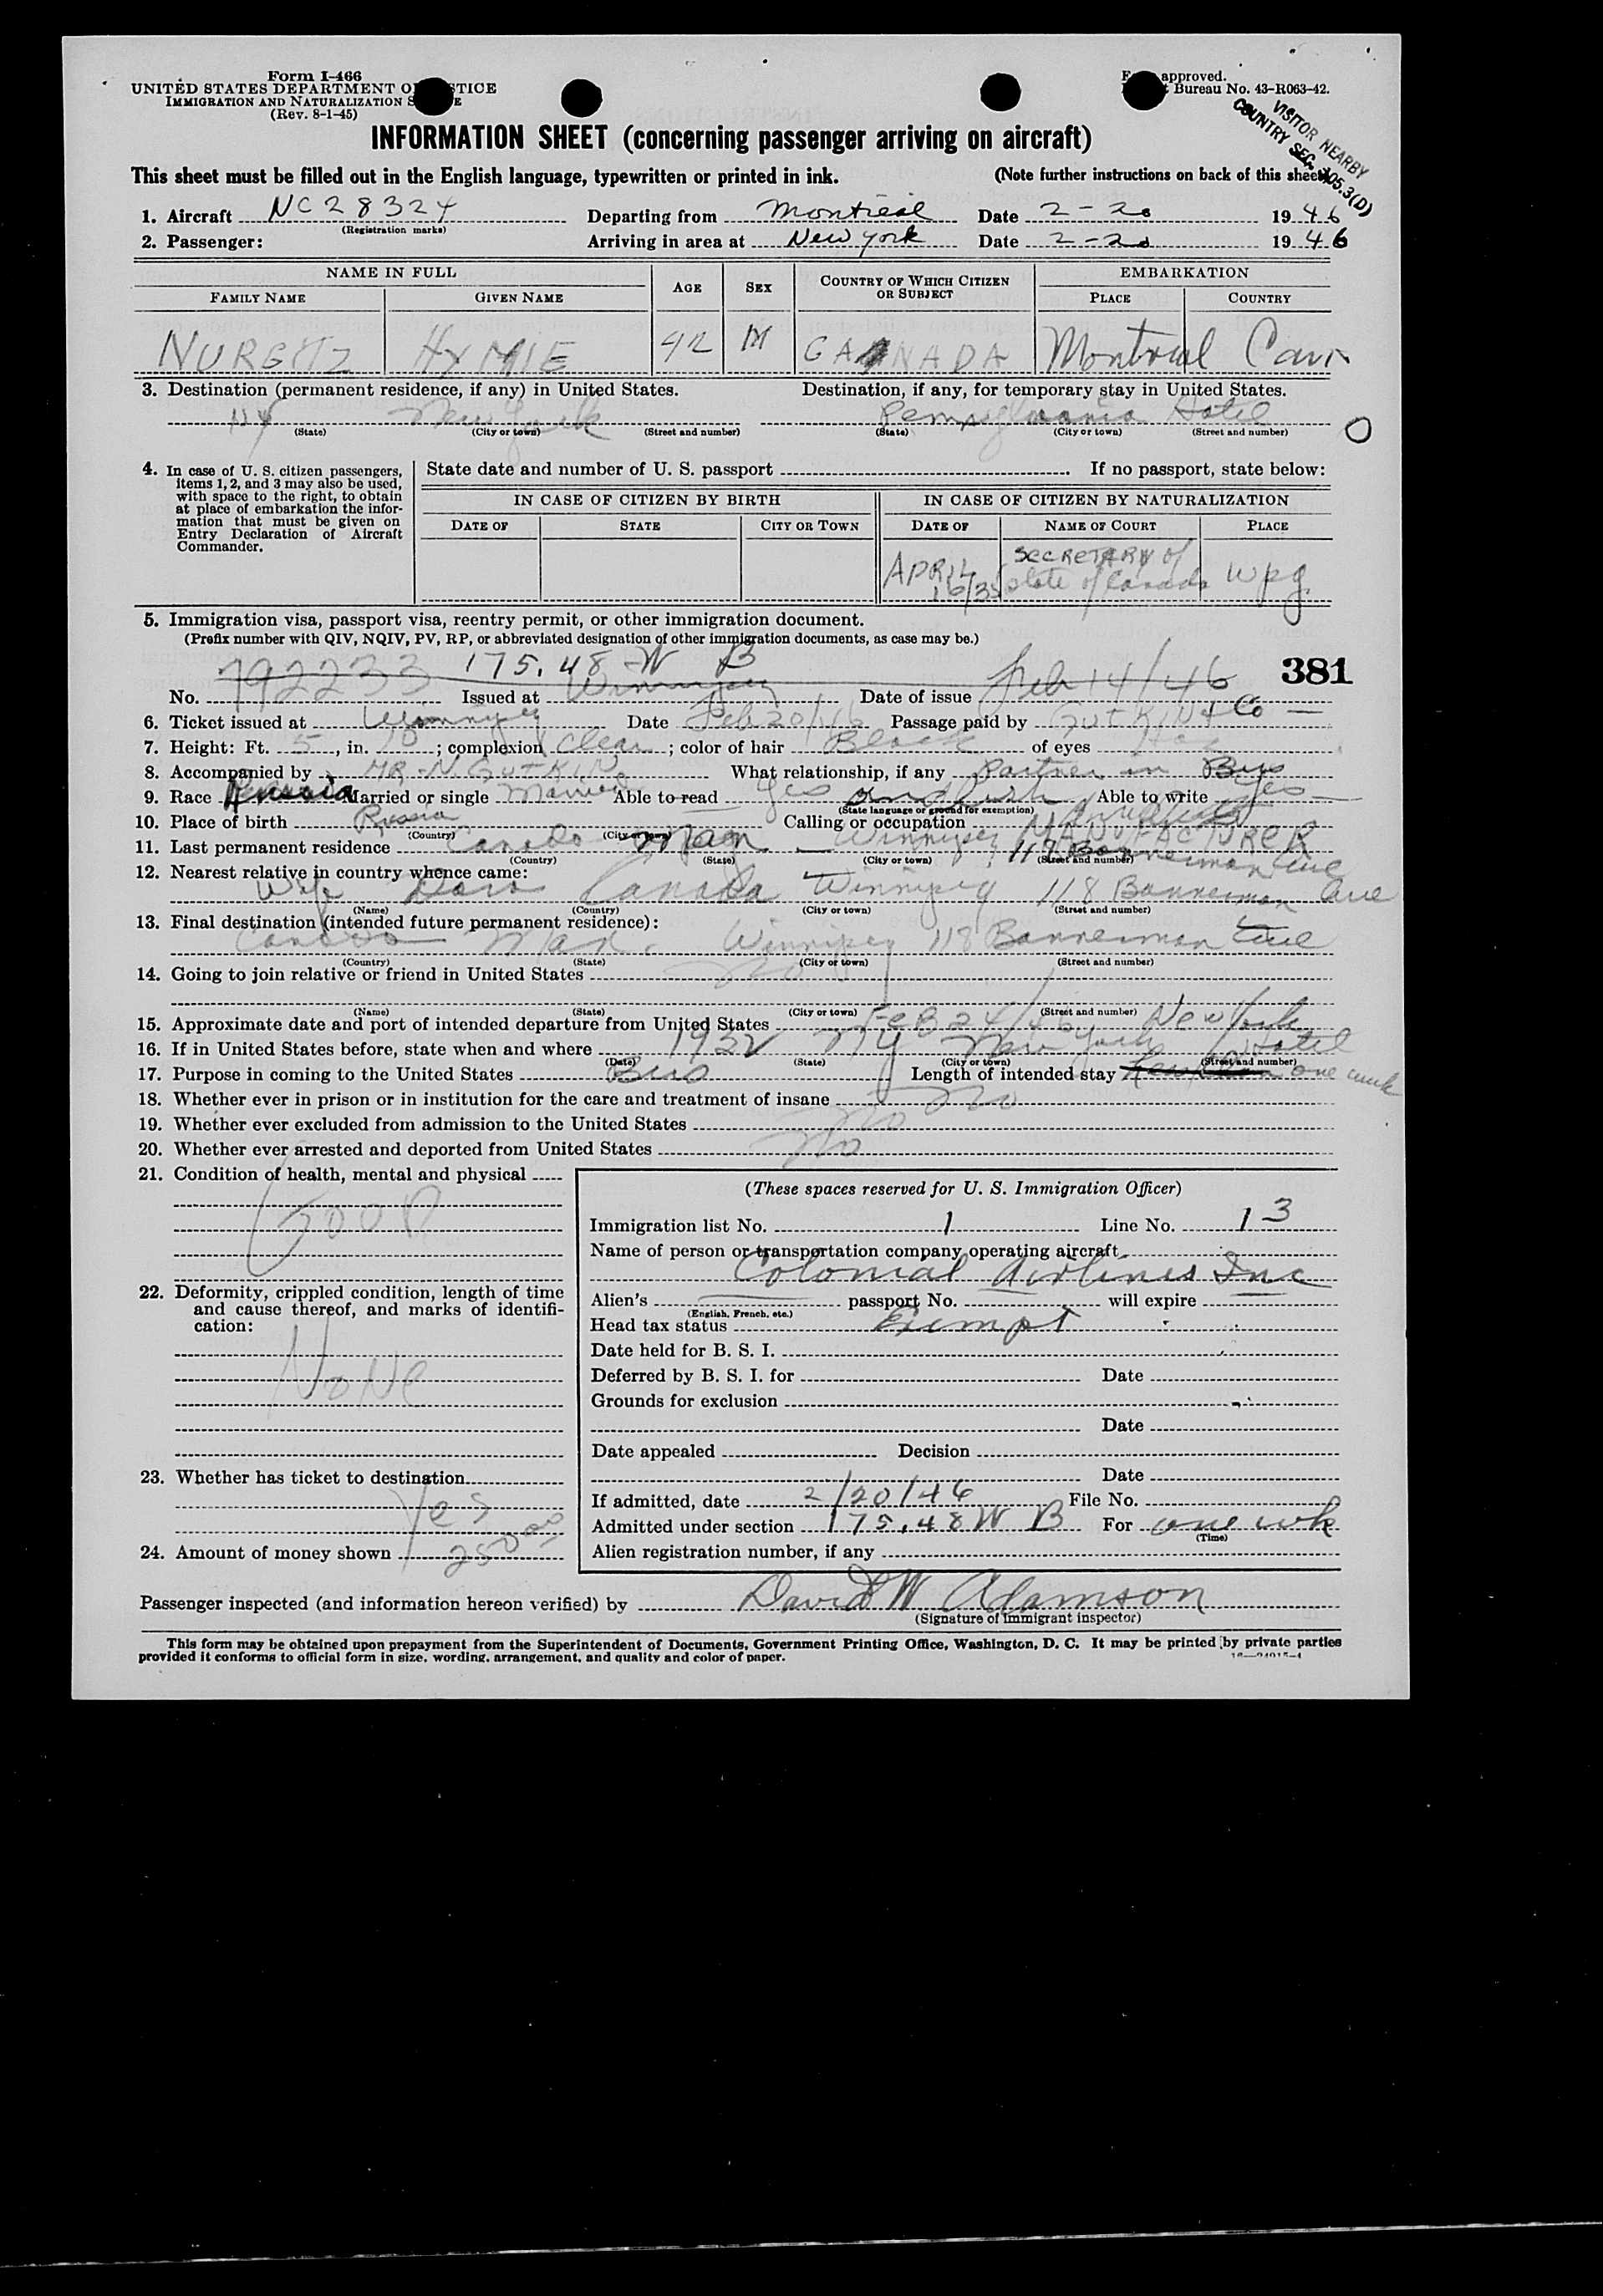 Form I-466
UNITED STATES DEPARTMENT OF JUSTICE
IMMIGRATION AND NATURALIZATION SERVICE
(Rev. 8-1-45)
approved.
Bureau No. 43-R063-42.
VISITOR NEARBY
COUNTRY SEC.
INFORMATION SHEET (concerning passenger arriving on aircraft)
This sheet must be filled out in the English language, typewritten or printed in ink. (Note further instructions on back of this sheet)
1. Aircraft NC28324 Departing from Montreal Date 2-20 1946
(Registration marks)
2. Passenger: Arriving in area at New York Date 2-20 1946
NAME IN FULL AGE SEX COUNTRY OF WHICH CITIZEN OR SUBJECT EMBARKATION
FAMILY NAME GIVEN NAME PLACE COUNTRY
HYMIE 42 M CANADA Montreal Can
3. Destination (permanent residence, if any) in United States. Destination, if any, for temporary stay in United States.
NY New York Pennsylvania Hotel
(State) (City or town) (Street and number) (State) (City or town) (Street and number)
4. In case of U. S. citizen passengers, items 1, 2, and 3 may also be used, with space to the right, to obtain at place of embarkation the information that must be given on Entry Declaration of Aircraft Commander.
State date and number of U. S. passport If no passport, state below:
IN CASE OF CITIZEN BY BIRTH IN CASE OF CITIZEN BY NATURALIZATION
DATE OF STATE CITY OR TOWN DATE OF NAME OF COURT PLACE
APRIL 16/35 SECRETARY of State of Canada Wpg.
5. Immigration visa, passport visa, reentry permit, or other immigration document.
(Prefix number with QIV, NQIV, PV, RP, or abbreviated designation of other immigration documents, as case may be.)
175.48 W B 381
No. 792233 Issued at Winnipeg Date of issue Feb 14/46
6. Ticket issued at Winnipeg Date Feb 20/46 Passage paid by GUTKIN & Co
7. Height: Ft. 5, in. 10; complexion Clear; color of hair Black of eyes
8. Accompanied by MR. N. GUTKIN What relationship, if any Partner in Bus
9. Race Married or single Married Able to read Yes Able to write Yes
(State language or ground for exemption)
10. Place of birth Russia Calling or occupation MANUFACTURER
(Country) (City or town)
11. Last permanent residence Canada Man Winnipeg 118 Bannerman Ave
(Country) (State) (City or town) (Street and number)
12. Nearest relative in country whence came:
Wife Canada Winnipeg 118 Bannerman Ave
(Name) (Country) (City or town) (Street and number)
13. Final destination (intended future permanent residence):
Canada Man. Winnipeg 118 Bannerman Ave
(Country) (State) (City or town) (Street and number)
14. Going to join relative or friend in United States No
(Name) (State) (City or town) (Street and number)
15. Approximate date and port of intended departure from United States FEB 24/46 New York
16. If in United States before, state when and where 1932 NY New York Hotel
(Date) (State) (City or town) (Street and number)
17. Purpose in coming to the United States Bus Length of intended stay one week
18. Whether ever in prison or in institution for the care and treatment of insane No
19. Whether ever excluded from admission to the United States No
20. Whether ever arrested and deported from United States No
21. Condition of health, mental and physical
GOOD
22. Deformity, crippled condition, length of time and cause thereof, and marks of identification:
NoNe
23. Whether has ticket to destination
Yes
24. Amount of money shown 250.00
(These spaces reserved for U. S. Immigration Officer)
Immigration list No. 1 Line No. 13
Name of person or transportation company operating aircraft
Colonial Airlines Inc
Alien's passport No. will expire
(English, French, etc.)
Head tax status Exempt
Date held for B. S. I.
Deferred by B. S. I. for Date
Grounds for exclusion
Date
Date appealed Decision
Date
If admitted, date 2/20/46 File No.
Admitted under section 175.48 W B For one wk
(Time)
Alien registration number, if any
Passenger inspected (and information hereon verified) by David W Adamson
(Signature of immigrant inspector)
This form may be obtained upon prepayment from the Superintendent of Documents, Government Printing Office, Washington, D. C. It may be printed by private parties
provided it conforms to official form in size, wording, arrangement, and quality and color of paper.